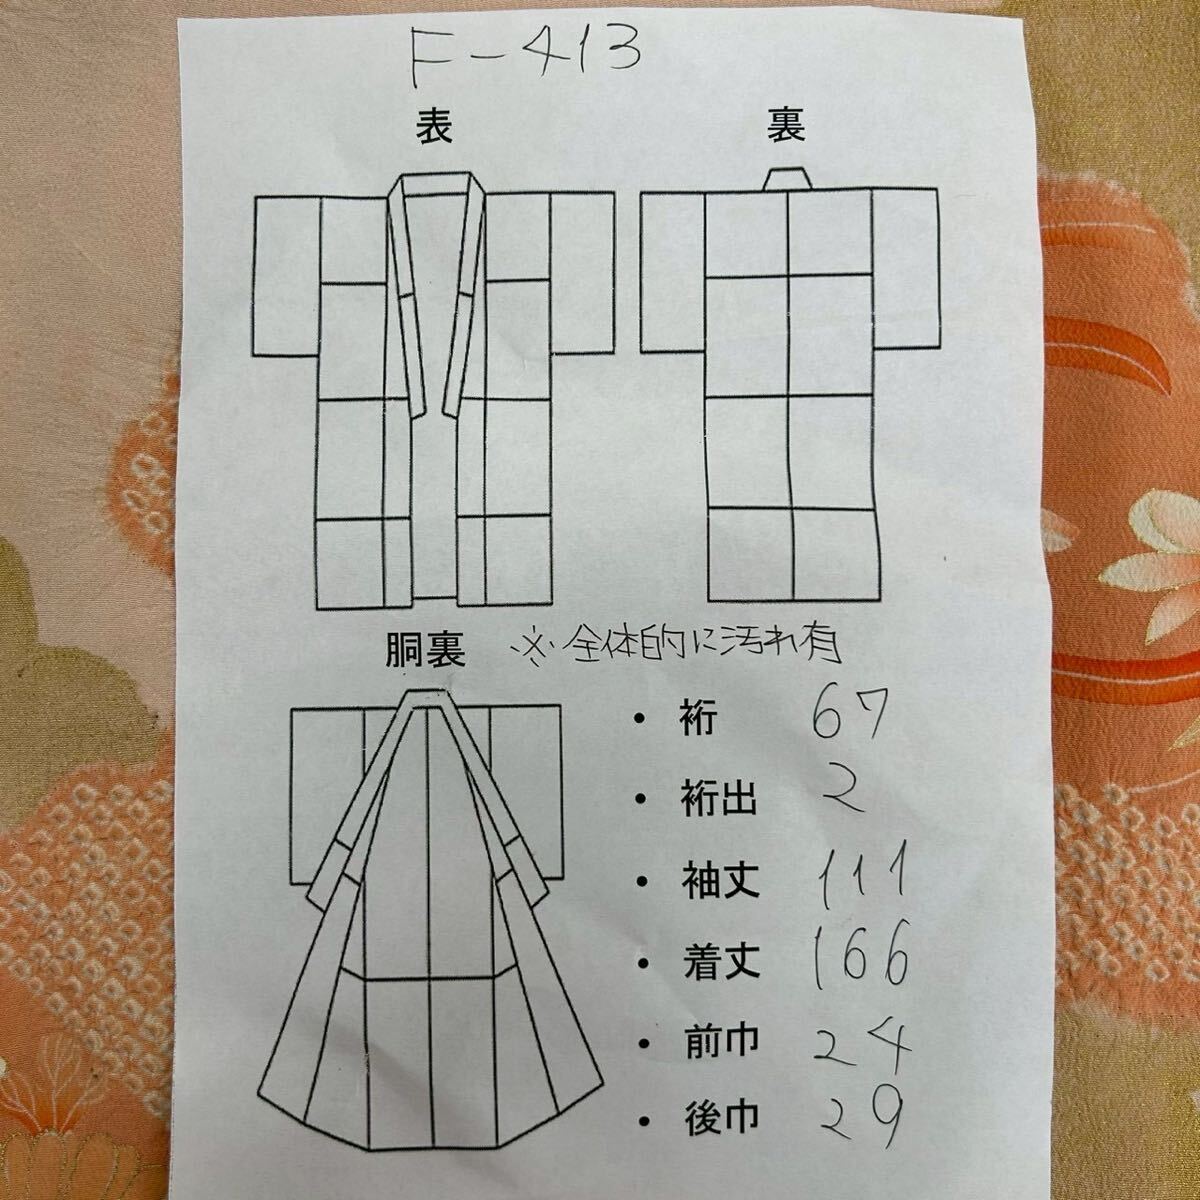 F-413
表 裏
胴裏 ※全体的に汚れ有
・ 裄 67
・ 裄出 2
・ 袖丈 111
・ 着丈 166
・ 前巾 24
・ 後巾 29